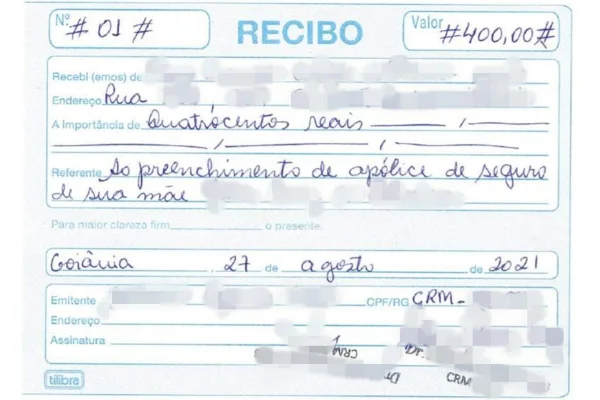 Nº # 01 # RECIBO Valor #400,00#
Recebi (emos) de
Endereço Rua
A Importância de Quatrocentos reais
Referente Ao preenchimento de apólice de seguro
de sua mãe
Para maior clareza firm o presente.
Goiânia 27 de agosto de 2021
Emitente CPF/RG CRM-
Endereço
Assinatura
CRM Dr.
Dr CRM
tilibra